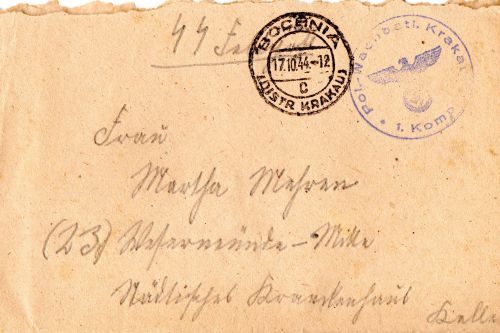 BOCHNIA
17.10.44.-12
C
(DISTR. KRAKAU)
Pol.-Wachbatl. Krakau
1. Komp.
Frau
Martha Mehren
(23) Wesermünde-Mitte
Städtisches Krankenhaus